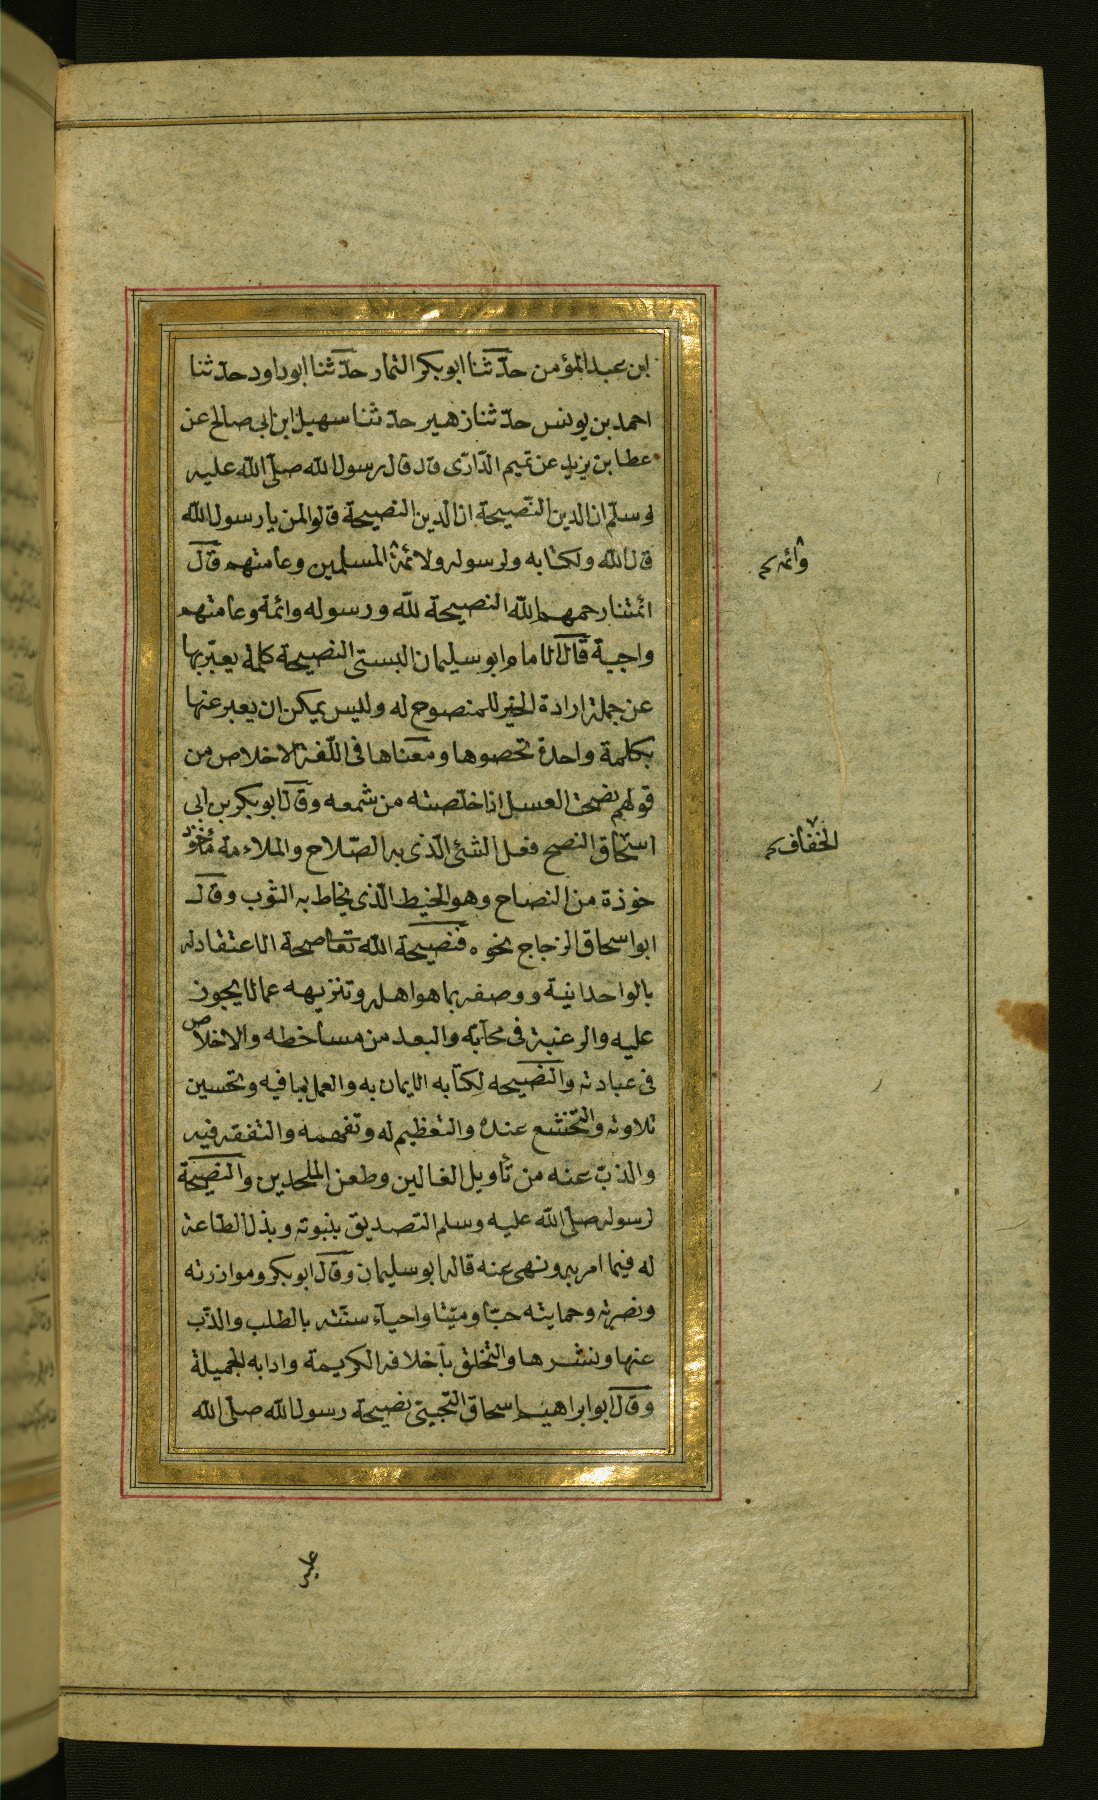 ابن عبد المؤمن حدّثنا ابو بكر التمار حدّثنا ابو داود حدّثنا
احمد بن يونس حدّثنا زهير حدّثنا سهيل ابن ابى صالح عن
عطا بن يزيد عن تميم الدّارى قال قال رسول الله صلّى الله عليه
وسلّم ان الدين النّصيحة ان الدين النصيحة قالوا لمن يا رسول الله
قال لله ولكتابه ولرسوله ولائمة المسلمين وعامتهم قال
وائمه صح
ائمتنا رحمهم الله النصيحة لله ورسوله وائمة وعامتهم
واجبة قال الامام ابو سليمان البستى النصيحة كلمة يعبّر بها
عن جملة ارادة الخير للمنصوح له وليس يمكن ان يعبر عنها
بكلمة واحدة تحصوها ومعناها فى اللّغة الاخلاص من
قولهم نصحت العسل اذا خلصته من شمعه وقال ابو بكر بن ابى
الخفّاف صح
اسحاق النصح فعل الشئ الّذى به الصّلاح والملاءمة مأخوذ
خوذة من النصاح وهو الخيط الّذى يخاط به الثوب وقال
ابو اسحاق الزجاج نحوه فنصيحة الله تعا صحة الاعتقاد له
بالواحدانية ووصفه بما هو اهله وتنزيهه عما لا يجوز
عليه والرغبة فى محآبّه والبعد من مساخطه والاخلاص
فى عبادته والنصيحه لكتابه الايمان به والعمل بما فيه وتحسين
تلاوته والتّخشع عنده والتعظيم له وتفهمه والتفقه فيه
والذبّ عنه من تأويل الغالين وطعن الملحدين والنصيحة
لرسوله صلّى الله عليه وسلم التصديق بنبوته وبذل الطّاعة
له فيما امر به ونهى عنه قاله ابو سليمان وقال ابو بكر وموازرته
ونصرته وحمايته حيّا وميّتا واحيآء سنّته بالطلب والذّب
عنها ونشرها والتخلق بأخلاقه الكريمة وادابه الجميلة
وقال ابو ابراهيم اسحاق التّجيبى نصيحة رسول الله صلّى الله
عليه